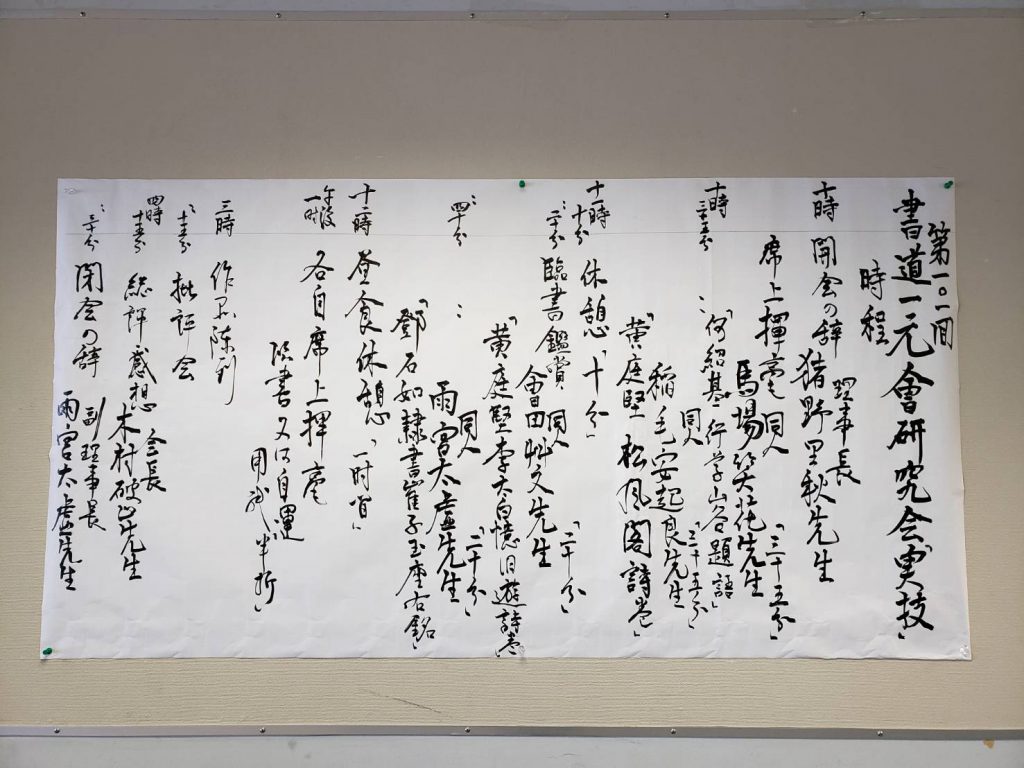 第一〇一回
書道一元會研究会実技」
時程
十時 開会の辞 理事長
猪野里秋先生
席上揮毫 同人 「三十五分」
馬場先生
十時三十五分 〃 「何紹基行学山谷題語」
同人
稲毛安起良先生 「三十五分」
「黄庭堅 松風閣詩巻」
十一時十分 休憩「十分」
〃二十分 臨書鑑賞 同人
會田艸文先生 「二十分」
「黄庭堅李太白憶旧遊詩巻」
〃四十分 〃 同人
雨宮太虚先生 「二十分」
「鄧石如隷書崔子玉座右銘」
十二時 昼食休憩「一時間」
午後一時 各自席上揮毫
臨書又は自運
用紙 半折」
三時 作品陳列
〃十五分 批評会
四時十五分 総評感想 会長
木村破山先生
〃三十分 閉会の辞 副理事長
雨宮太虚先生